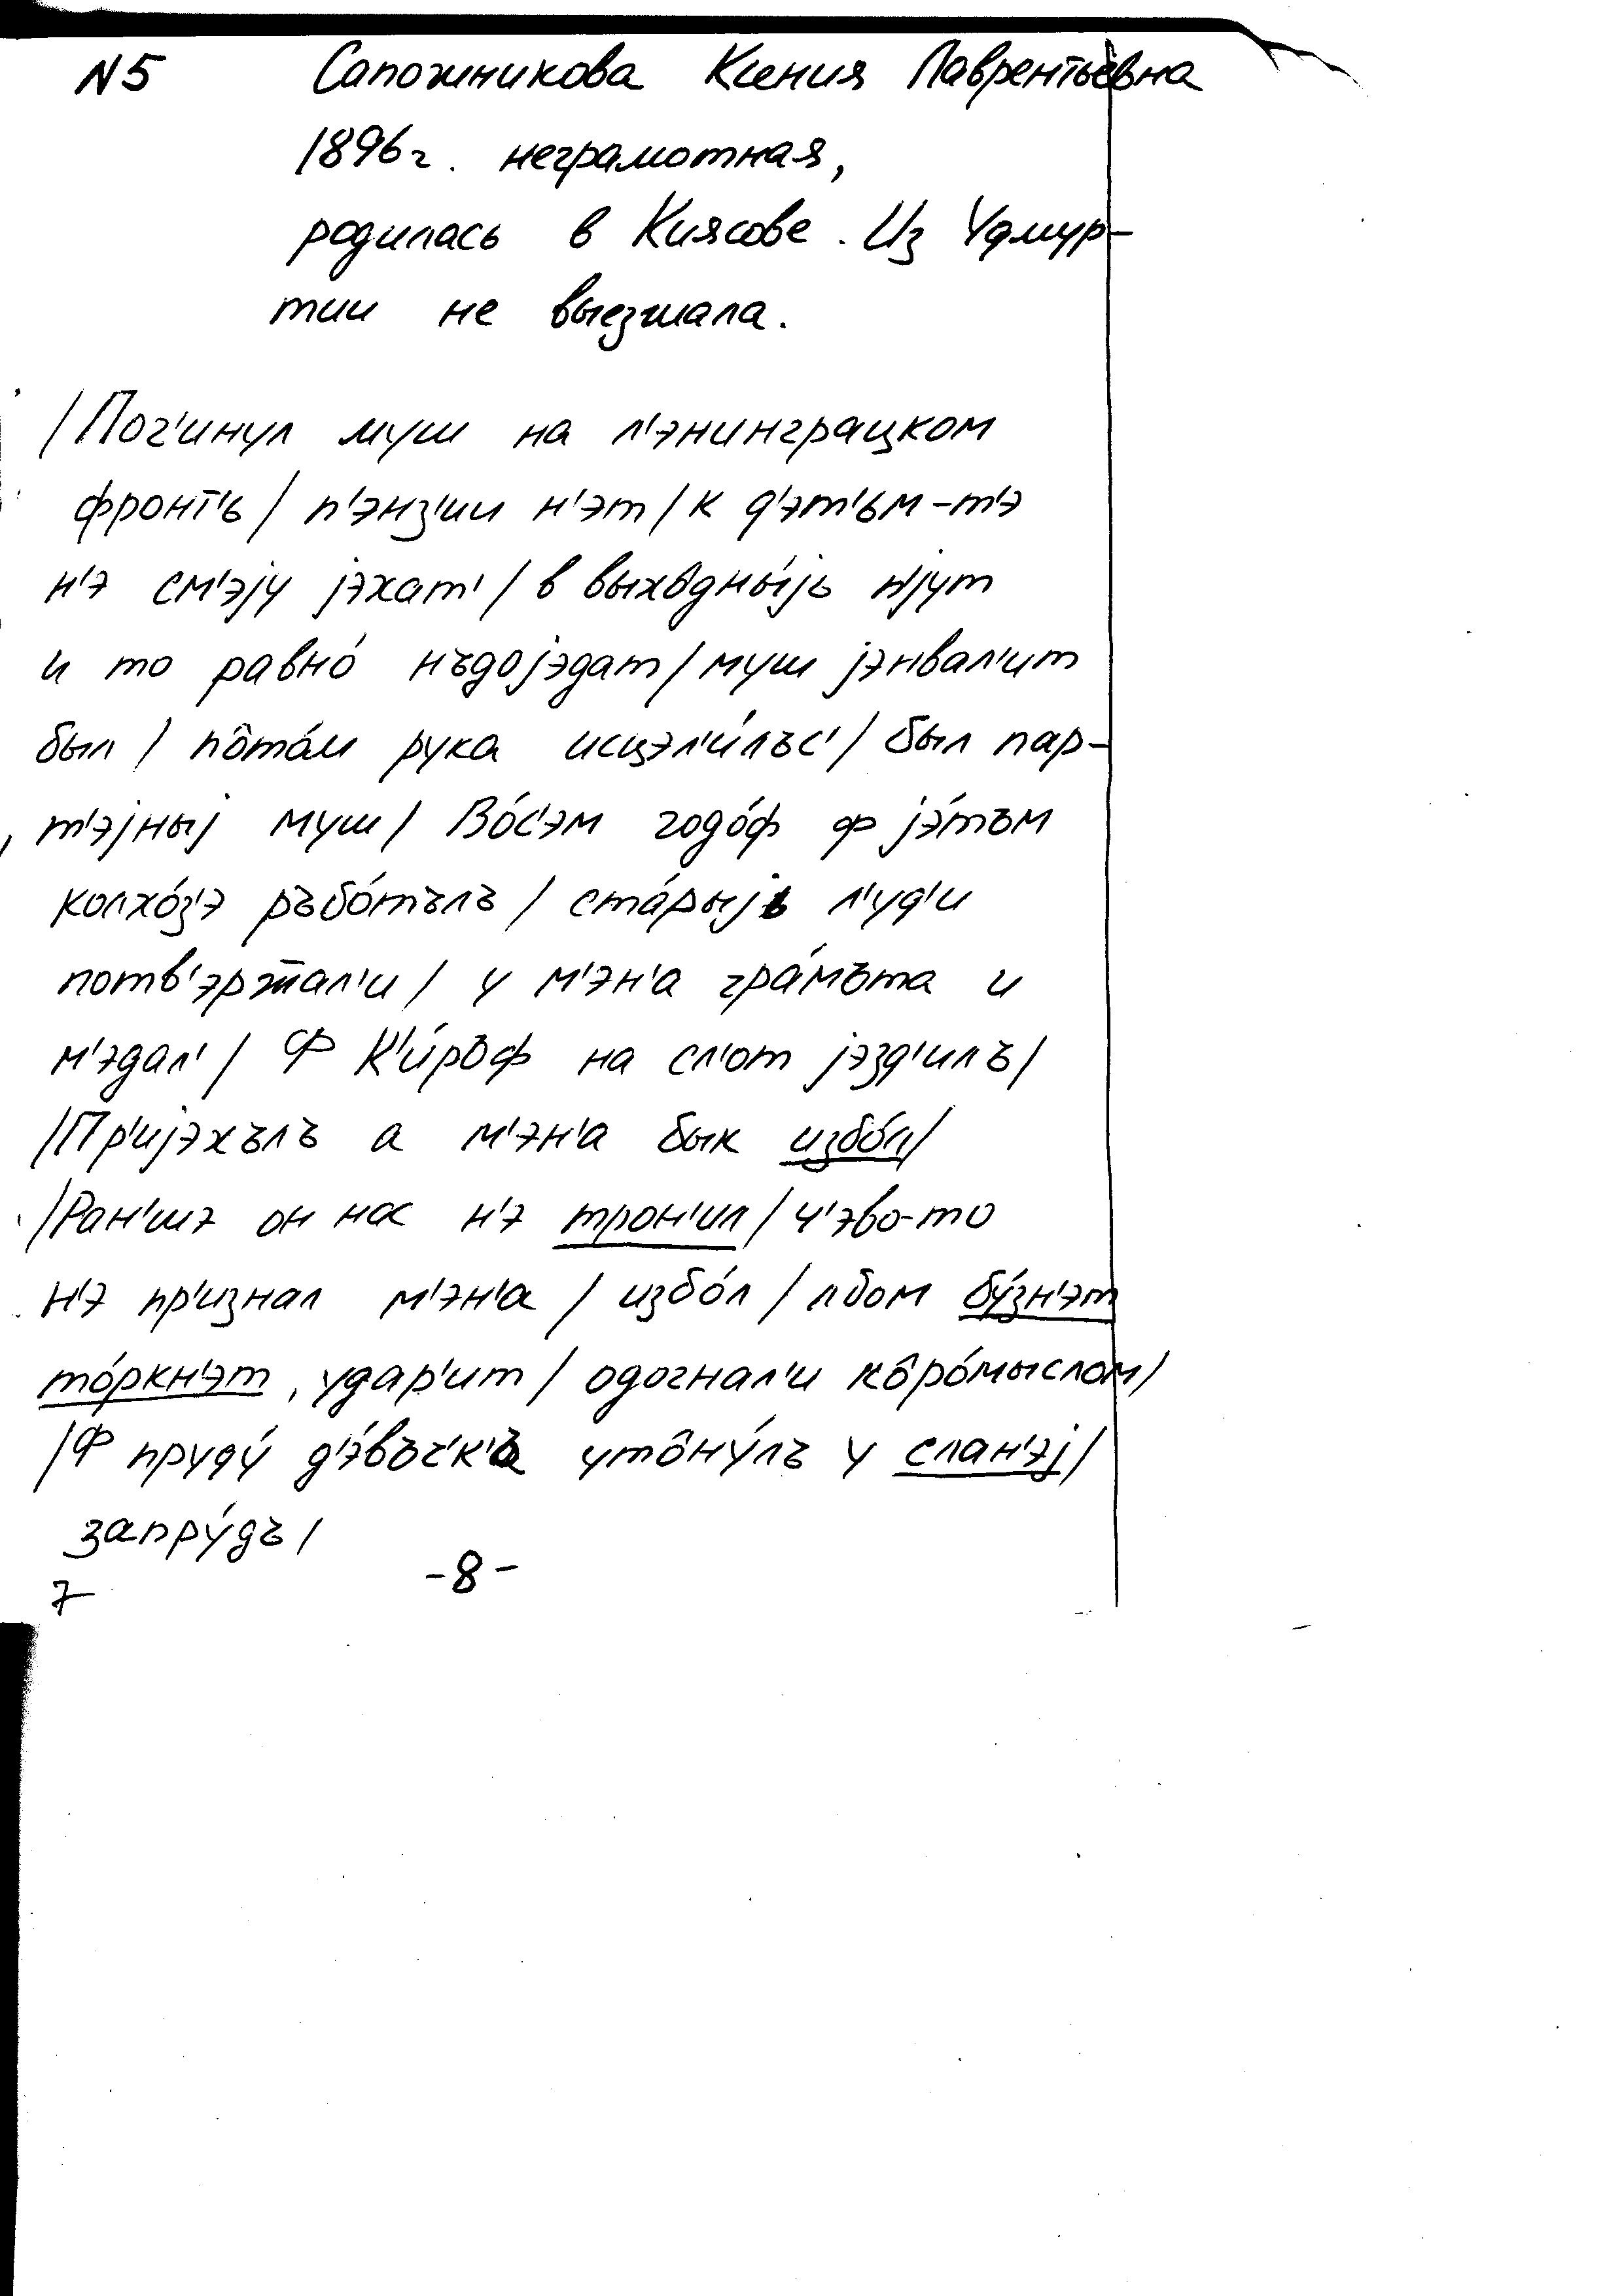 N5 Сапожникова Ксения Лаврентьевна
1896г. неграмотная,
родилась в Киясове. Из Удмур-
тии не выезжала.
/Пог'инул муш на л'энинграцком
фронт'ь/ п'энз'ии н'эт/к д'эт'ьм-т'э
н'э см'эjу jэхат'/в выхôдны́jь п'jут
и то равно́ нъдоjэдат/муш jэнвал'ит
был/ пôта́м рука исцэл'и́лъс'/ был пар-
т'эjныj муш/ Во́с'эм годо́ф ф jэ́тъм
колхо́з'э ръбо́тълъ/ ста́рыjь л'уд'и
потв'эржал'и/ у м'эн'а гра́мъта и
м'эдал'/ Ф К'и́ръф на сл'от jэзд'илъ/
/Пр'иjэхълъ а м'эн'а бык избо́л/
/Ран'шэ он нас н'э трон'ил/ ч'эво-то
н'э пр'изнал м'эн'а/ избо́л/ лбом бу́зн'эт
то́ркн'эт, удар'ит/ одогнал'и кôро́мыслом/
/Ф пруду́ д'э́въч'к'ъ утôну́лъ у слан'эj/
запру́дъ/
-8-
7